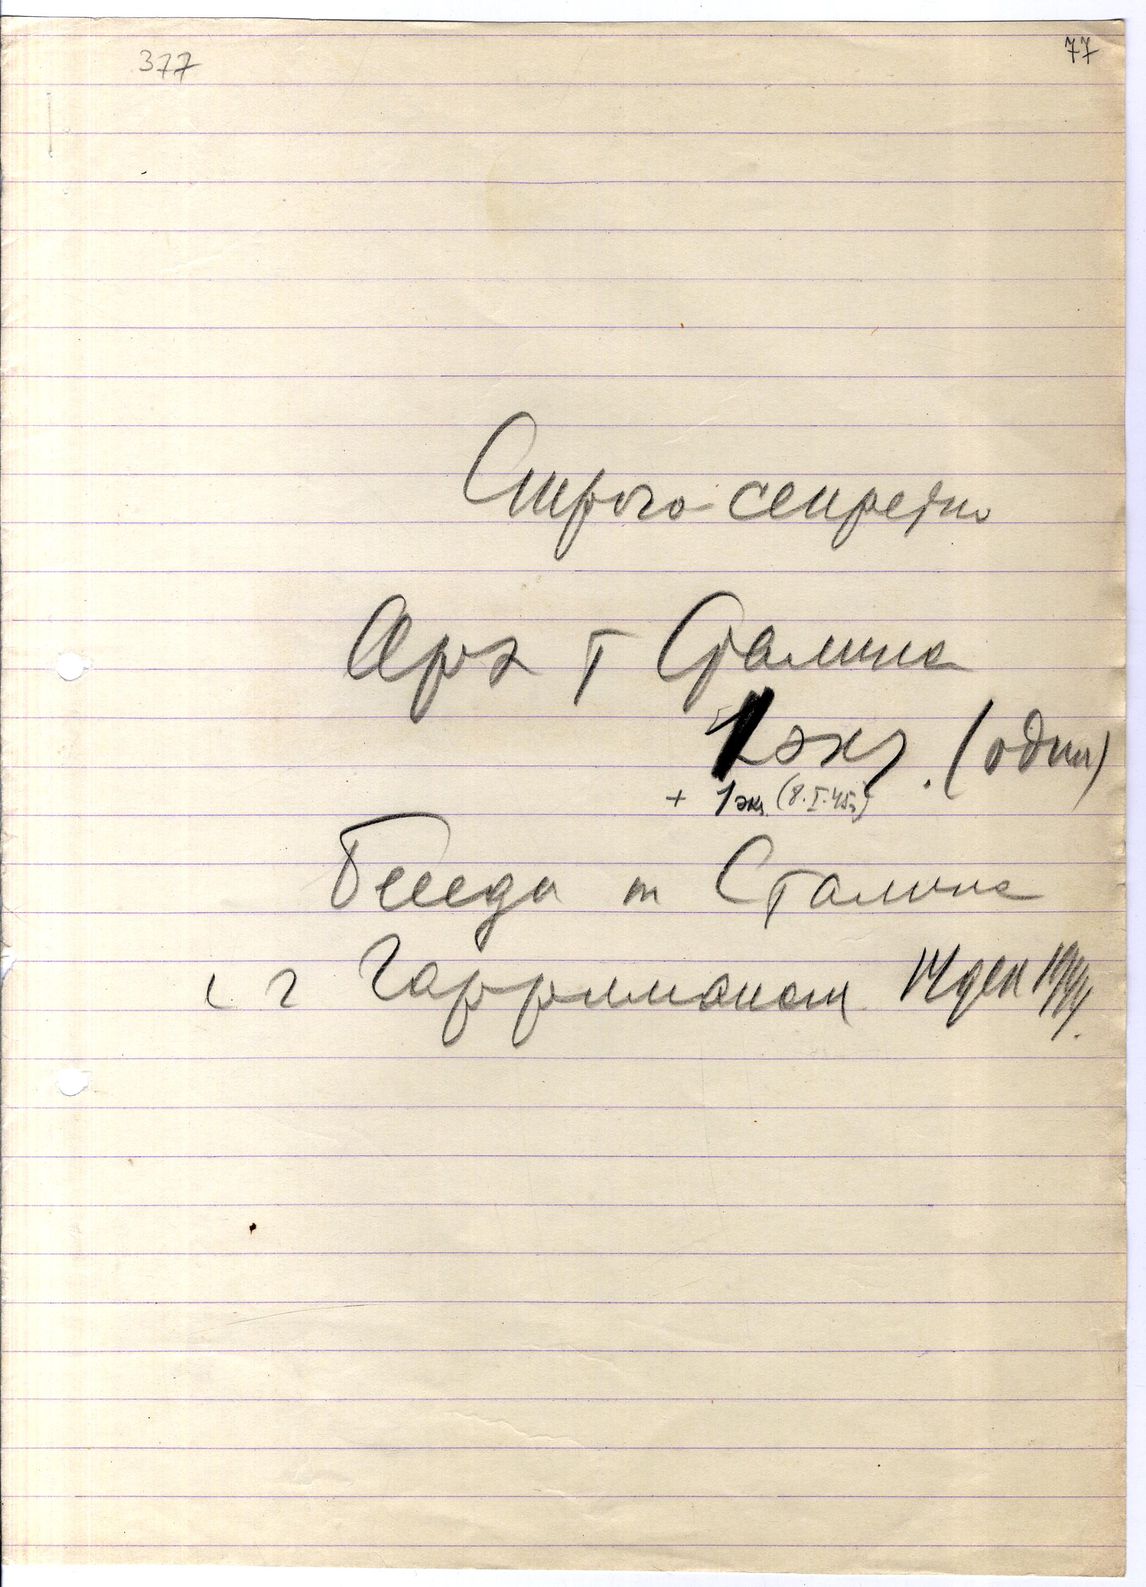 377
77
Строго секретно
Арх т Сталина
1 экз. (один)
+ 1 экз. (8.I.45г)
Беседа т Сталина
с г Гарриманом 14 дек 1944.